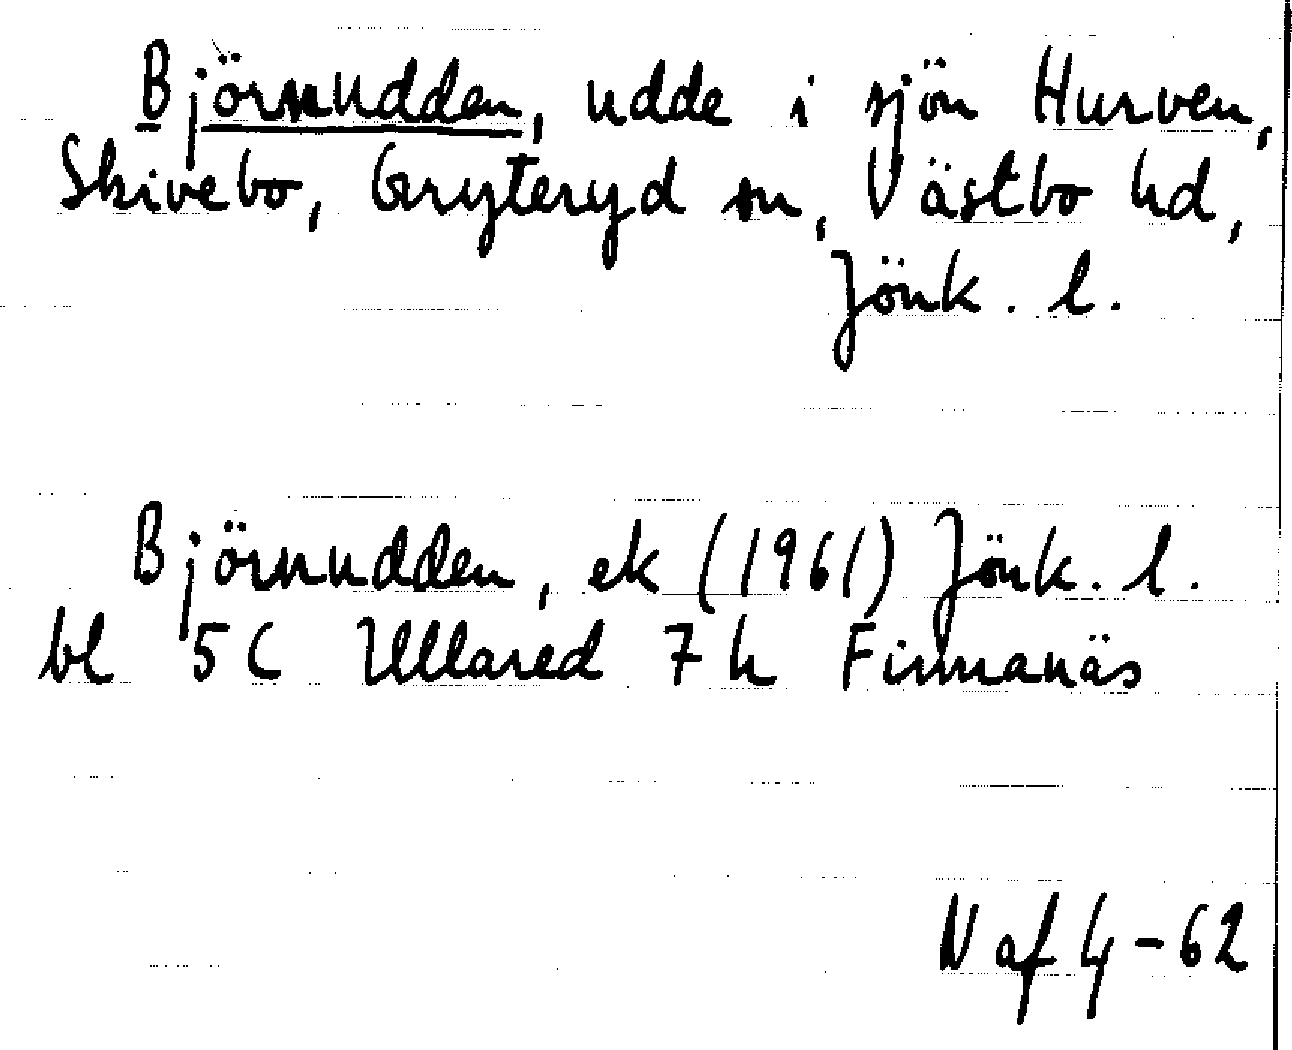 Björnudden, udde i sjön Hurven,
Skivebo, Gryteryd sn, Västbo hd,
Jönk. l.
Björnudden, ek (1961) Jönk. l.
bl 5C Ullared 7 h Finnanäs
N af G -62